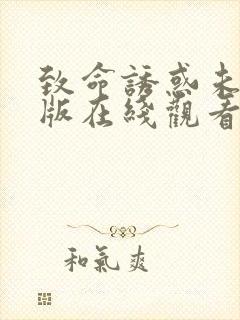 致命誘惑未
版在綫觀看
和氣爽